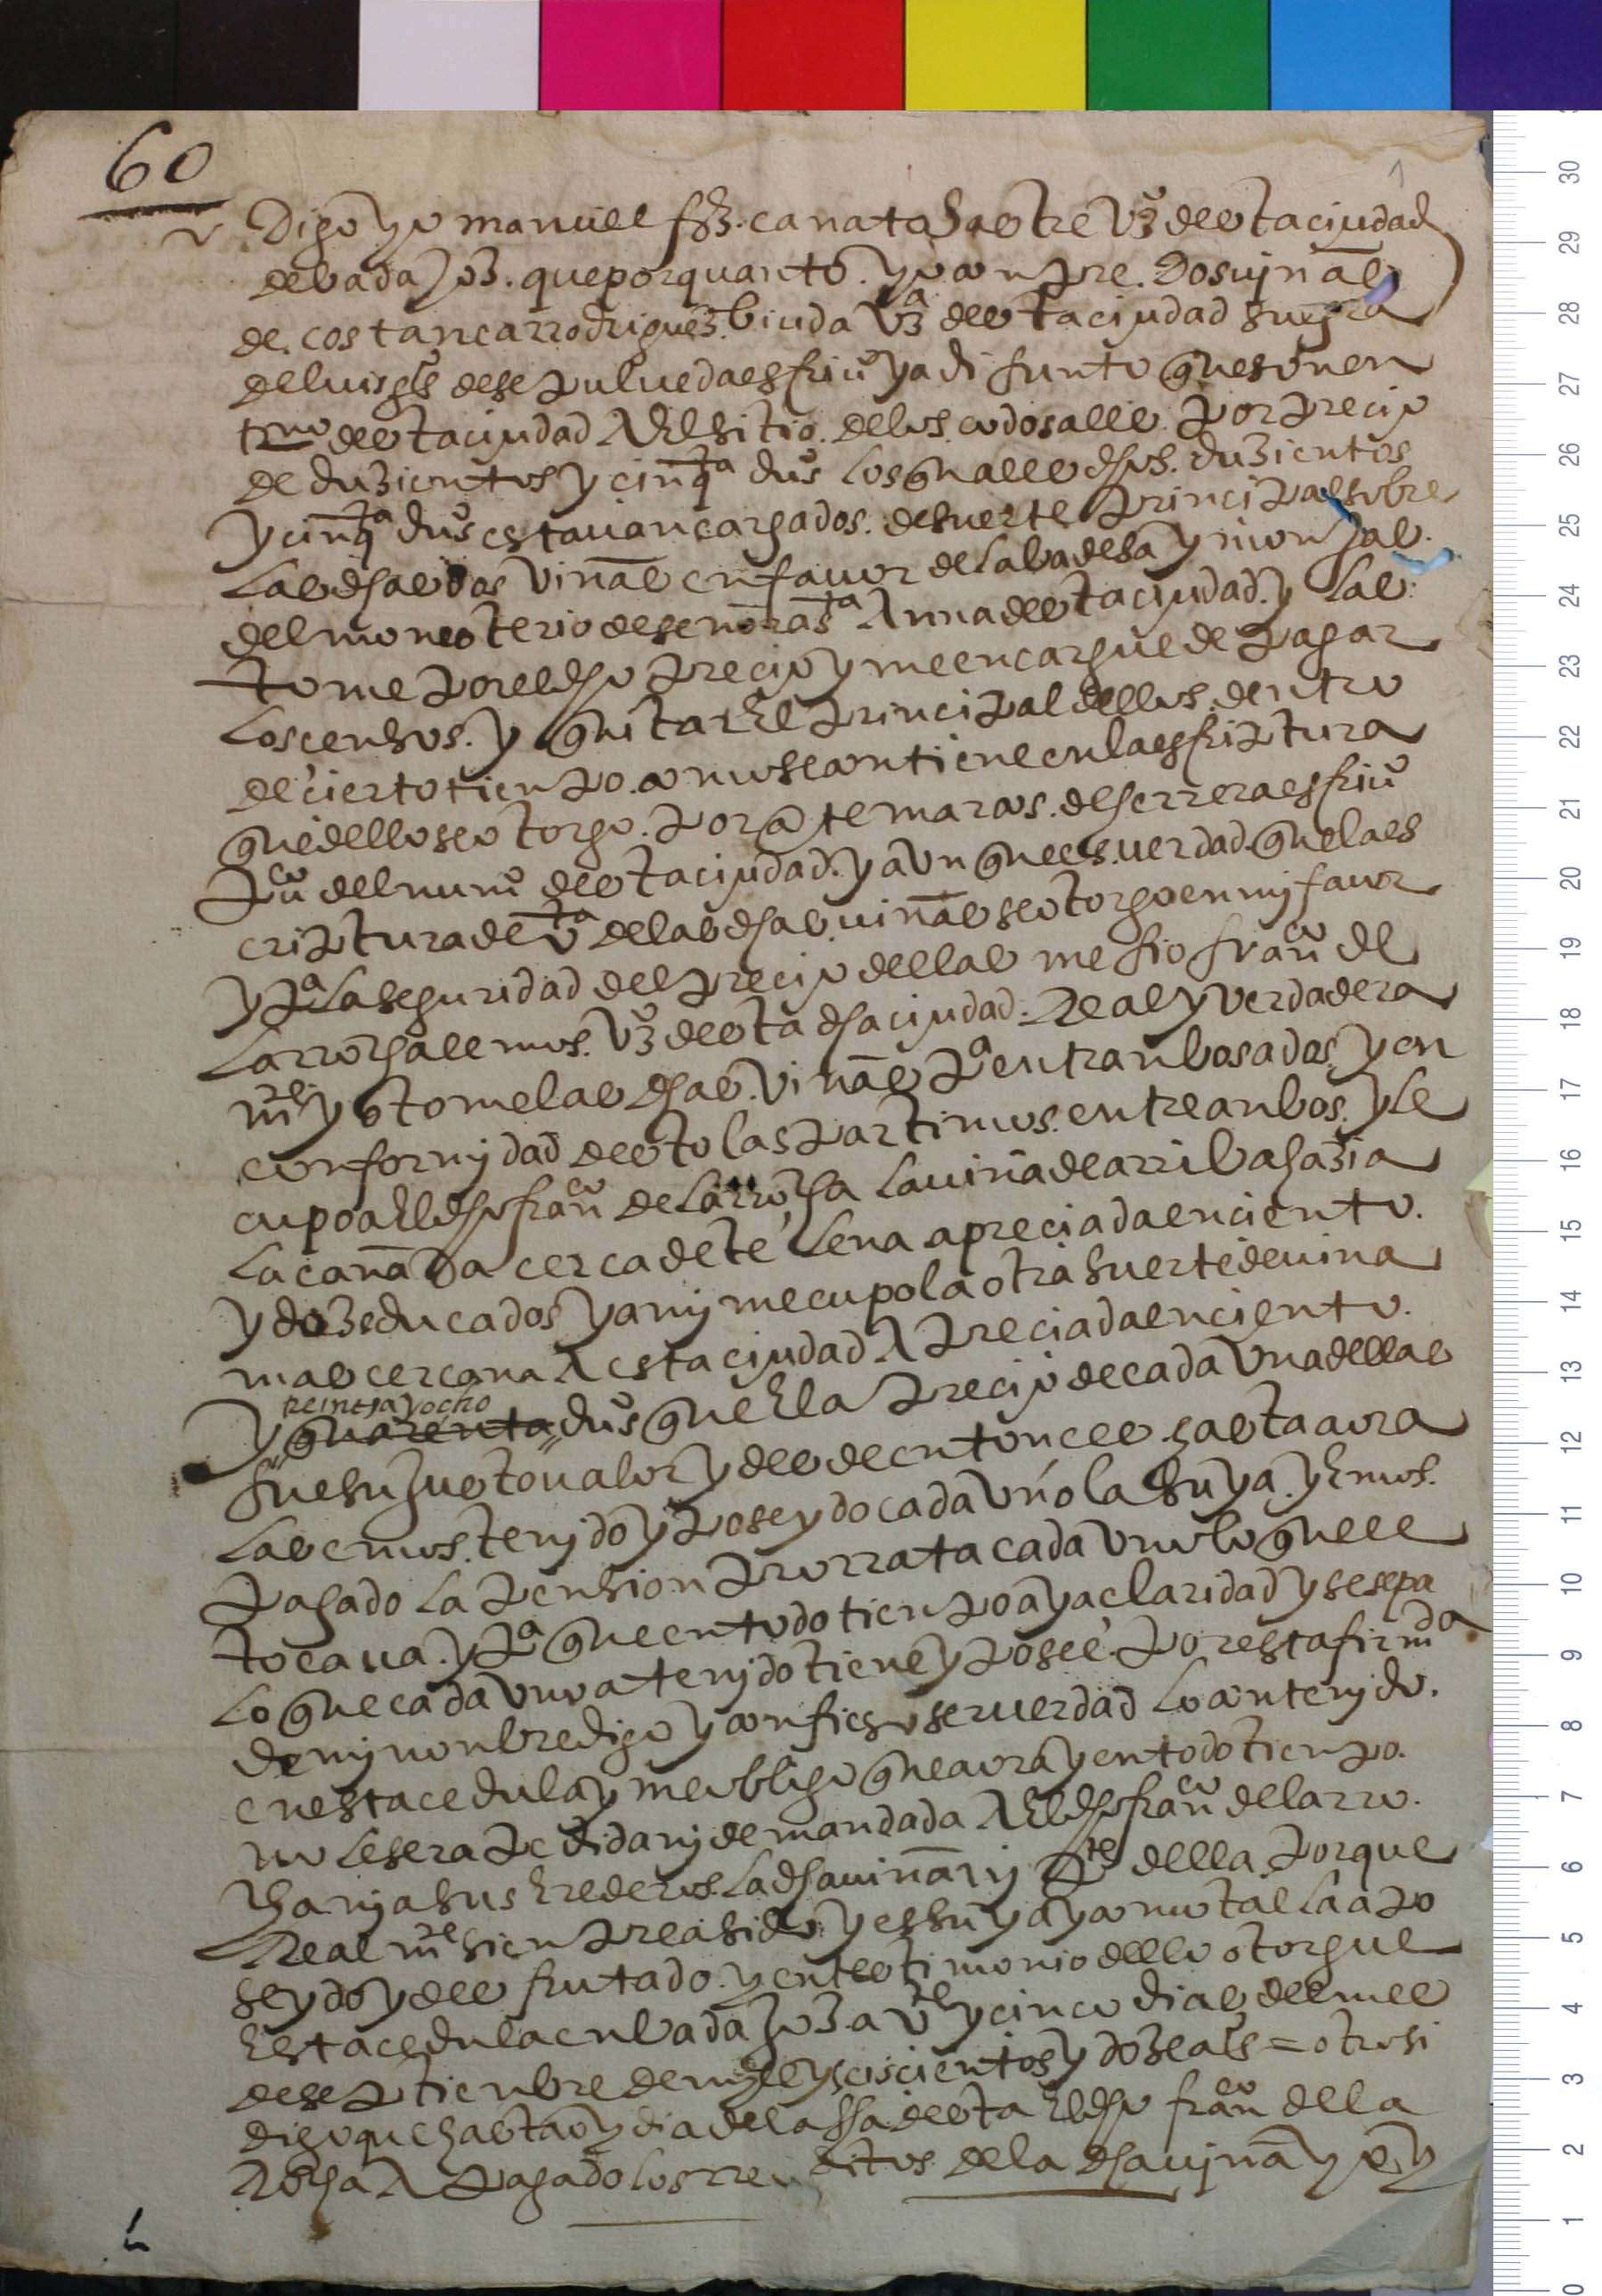 60
Digo yo manuel frz. canato sastre vº desta ciudad
de badajoz. que por quanto. yo conpre. dos viñas
de. costança rrodrigues. biuda vª desta ciudad suegra
de luis gls de sepulueda esKriuº ya difunto que son en
trmo desta ciudad A El sitio. de los. codosales. por precio
de duzientos y cinqta dus los quales dhos. duzientos
y cinqta dus estauan cargados. de suerte principal sobre
las dhas dos viñas en fauor de la badesa y monjas.
del monesterio de señora sta Anna desta ciudad. y las.
tome por el dho precio y me encargue de pagar
los censos. y quitar El principal dellos. dentro
de cierto tienpo. como se contiene en la esKriptura
que dello se otorgo. por ante marcos. de herrera esKriuº
puco del numº desta ciudad. y aun que es. uerdad. que la es
criptura de vta de las dhas. uiñas se otorgo en mj fauor
y pª la seguridad del precio dellas me fio franco de
la rrocha lemos. vº desta dha ciudad. Real y verdadera
mte yo tome las dhas. viñas pª entranbos a dos. y en
conformjdad desto las partimos. entre anbos. y le
cupo a El dho franco de la rrocha la uiña de arriba hazia
la cañada cerca de telena apreciada en ciento.
y doze ducados y a mj me cupo la otra suerte de uiña
mas cercana A esta ciudad Apreciada en ciento.
treinta y ocho
y quarenta dus que El a precio de cada vna dellas
fue su justo ualor y desde entonces. hasta aora
las emos. tenjdo y poseydo cada vno la suya. y Emos.
pagado la pension prorrata cada vno lo que le
tocaua. y pª que en todo tienpo aya claridad y se sepa
lo que cada vno a tenjdo tiene y posee. por esta firmda
de mj nonbre digo y confieso ser uerdad lo contenjdo.
en esta cedula y me obligo que aora y en todo tienpo.
no le sera pedida nj demandada A El dho franco de la rro.
cha nj a sus Erederos. la dha uiña nj pte della porque
Realmte sienpre a sido y es suya y como tal la a po
seydo y desfrutado. y en testimonio dello otorgue
Esta cedula en badajoz a vte y cinco dias del mes
de septienbre de mjll y seiscientos y dos años = otrosi
digo que hasta oy dia de la fha desta El dho franco de la
Rocha A pagado los rreditos. de la dha uiña y yo y